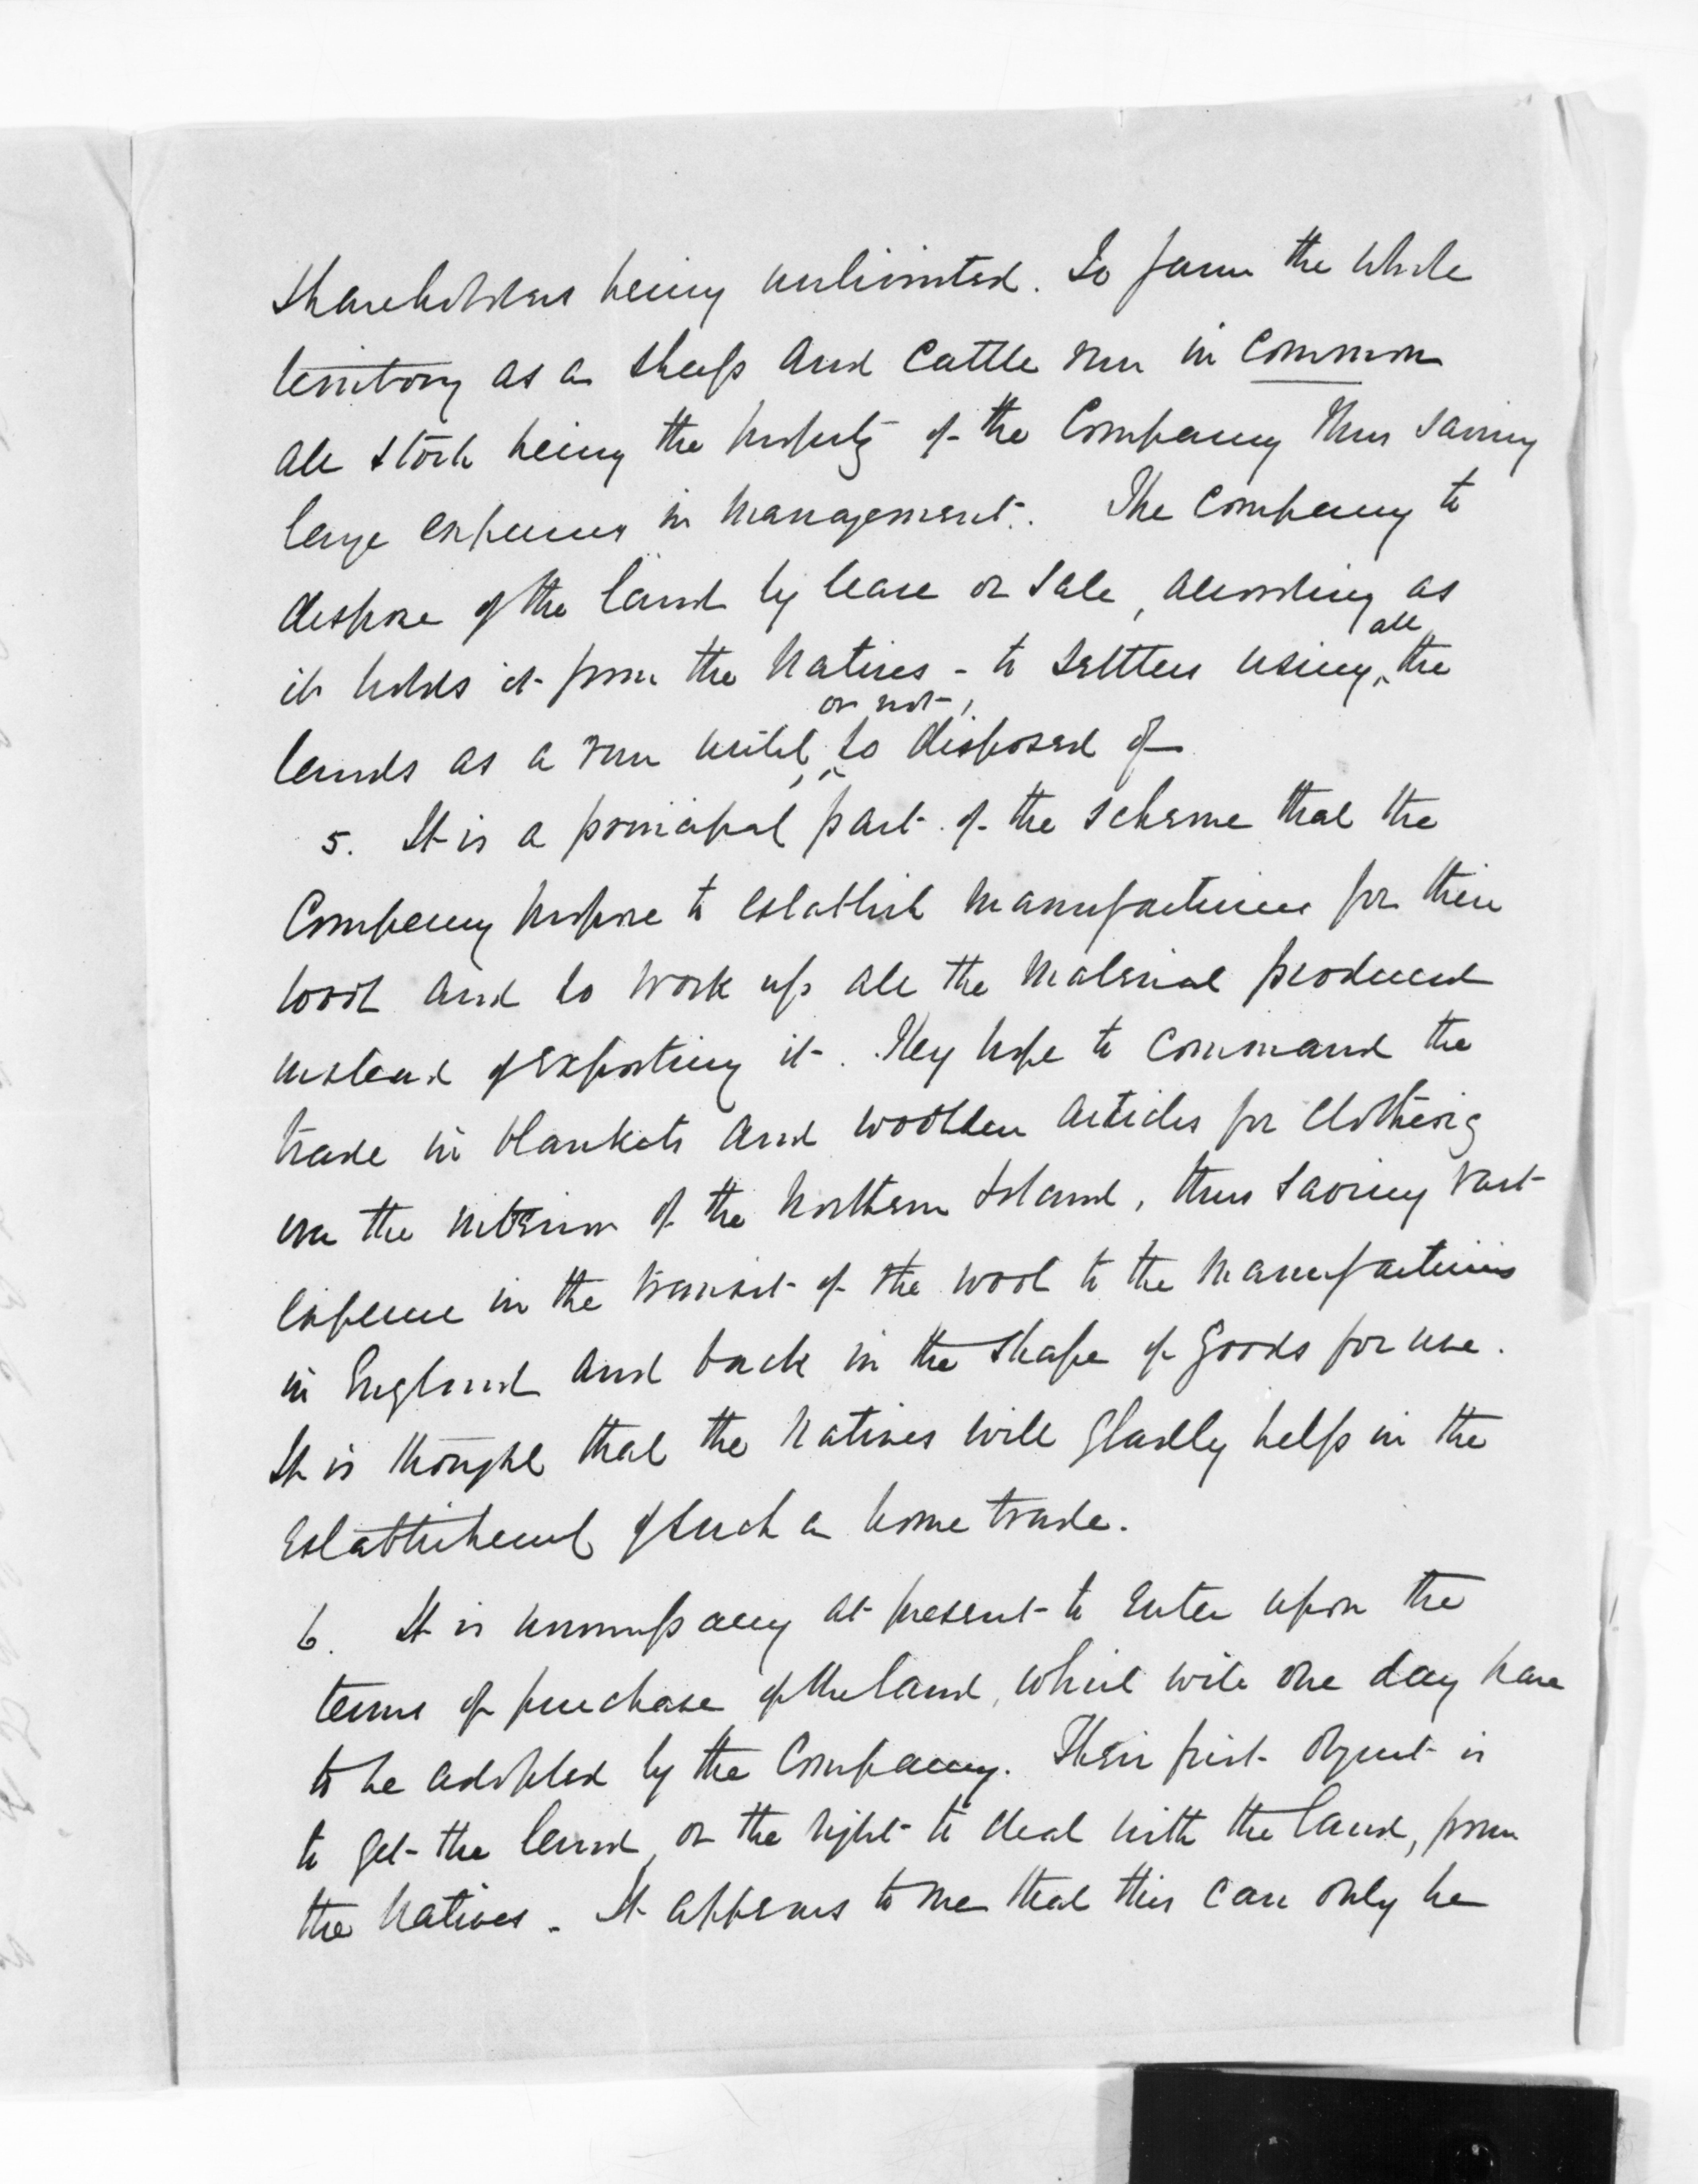 shareholders being unlimited. To farm the whole
territory as a sheep and cattle run in common
all stock being the property of the Company thus saving
large expenses in management. The Company to
dispose of the land by lease or sale, according as
it holds it from the Natives - to settlers using all the
lands as a run until, or not, so disposed of
5. It is a principal part of the scheme that the
Company propose to establish manufactories for their
wool and to work up all the material produced
instead of exporting it. They hope to command the
trade in blankets and woollen articles for clothing
over the interior of the Northern Island, thus saving vast
expense in the transit of the wool to the manufactories
in England and back in the shape of goods for use.
It is thought that the Natives will gladly help in the
establishment of such a home trade.
6. It is unnecessary at present to enter upon the
terms of purchase of the land, which will one day have
to be adopted by the Company. Their first object is
to get the land, or the right to deal with the land, from
the Natives - It appears to me that this can only be